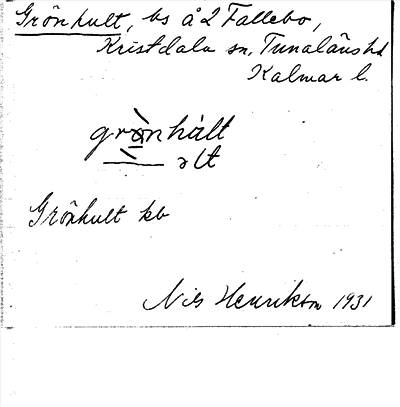 Grönhult, bs å 2 Fallebo,
Kristdala sn, Tunaläns hd
Kalmar l.
grònhàlt
ɔlt
Grönhult kb
Nils Henrikson 1931